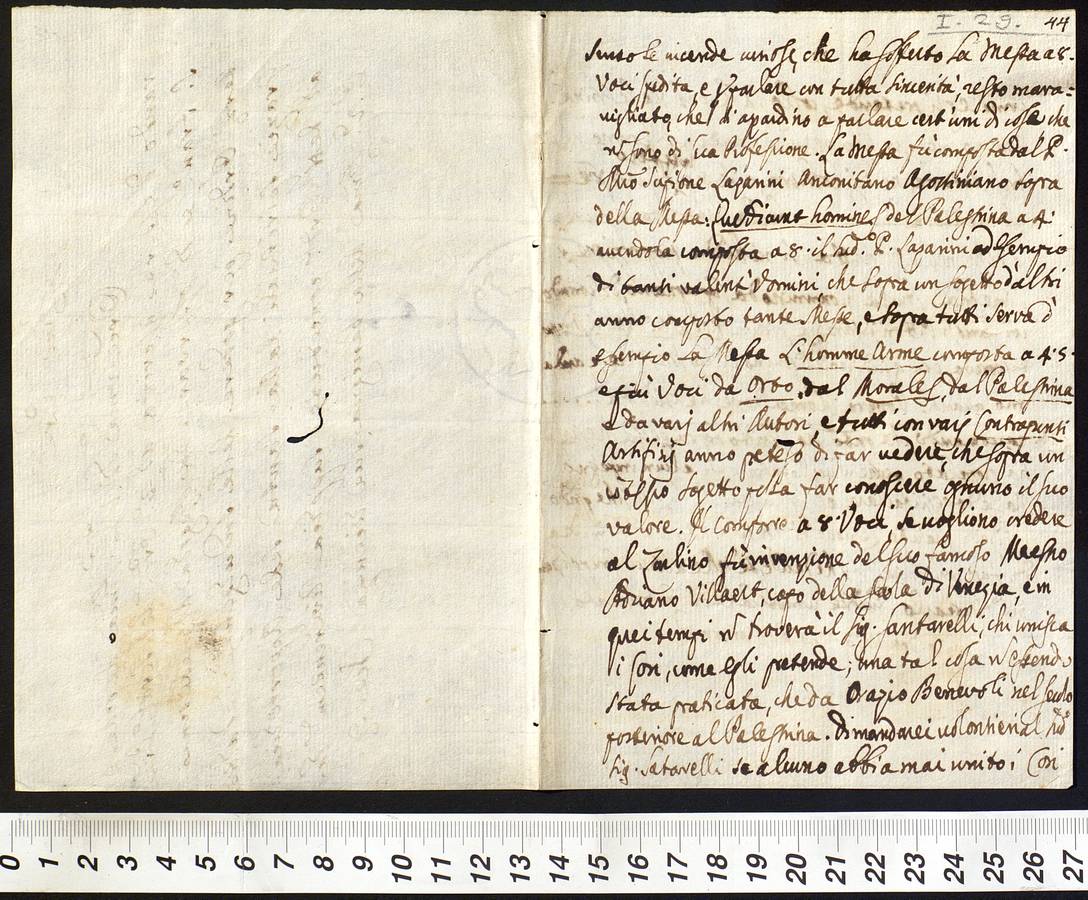 I. 29. 44
Sento le vicende curiose, che ha sofferto la Messa a 8.
Voci spedita, e p parlare con tutta sincerità, resto mara=
vigliato, che s'apardino a parlare cert'uni di cose che
nõ sono di sua Professione. La Messa fù composta dal P.
Mrõ Scipione Lazarini Anconitano Agostiniano sopra
della Messa: Que dicunt homines del Palestrina a 4.
avendola composta a 8. il sud.º P. Lazarini ad Esempio
di tanti valenti Uomini che sopra un sogetto d'altri
anno composto tante Messe, e sopra tutti serva d'
esempio la Messa L'homme Arme composta a 4. 5.
e più Voci da Orto, dal Morales, dal Palestrina
e da varj altri Autori, e tutti con varj Contrapunti
Artifizj anno preteso di far vedere, che sopra un
sogetto possa far conoscere ognuno il suo
valore. Il comporre a 8. Voci se vogliono credere
al Zarlino fù invenzione del suo famoso Maestro
Adriano Villaert, capo della scola di Venezia, e in
quei tempi nõ troverà il Sig. Santarelli, chi unisca
li Cori, come egli pretende; una tal cosa nõ essendo
stata praticata, che da Orazio Benevoli nel secolo
posteriore al Palestrina. Dimanderei volontieri al sud.º
Sig. Satarelli se alcuno abbia mai unito i Cori
0 1 2 3 4 5 6 7 8 9 10 11 12 13 14 15 16 17 18 19 20 21 22 23 24 25 26 27